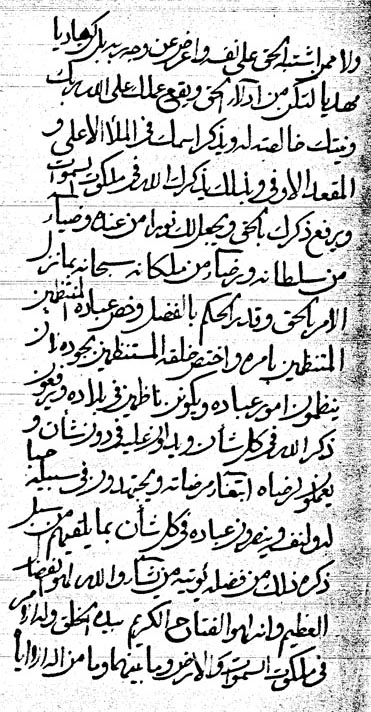 ولا ممن اشتبه الحق على نفسه واعرض عن وجه ربه بل كن هاديا
مهديا لتكن من ادلاء الحق ويقع عملك على الله ربك
ونيتك خالصة له ويذكر اسمك في الملأ الاعلى و
المقعد الاوفى وبذلك يذكرك الله في ملكوت السموات
ويرفع ذكرك بالحق ويجعل لك نورا من عنده وضياء
من سلطانه ورضاء من ملكانه سبحانه بما نزل
الامر بالحق وقدر الحكم بالفضل وخص عباده المنتظمين
المنتظمين بامره واختص خلقه المستنظمين بجوده ان
ينظمون امور عباده ويكونن ناظمين في بلاده ويرفعون
ذكر الله في كل شأن في دون شأن و
يعملوا لرضاه ابتغاء مرضاته ويجتهدون في سبيله
عباده في كل شأن بما يلقيهم من
ذكره ذلك من فضله يؤتيه من يشاء والله لهو الفضال
العظيم وانه لهو الفتاح الكريم بيده الخلق وله الامر
في ملكوت السموات والارض وما بينهما وما من اله الا اياه